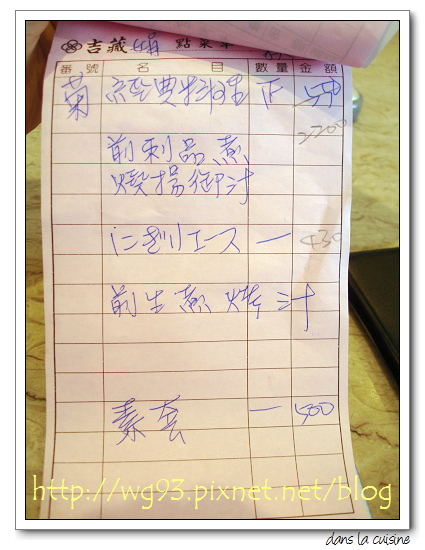 吉藏 點菜單
番號 名目 數量 金額
菊 經典料理 正 550
2200
前刺品煮
燒揚御汁
にぎりエース 一 430
前生煮燒汁
素套 一 500
http://wg93.pixnet.net/blog
dans la cuisine